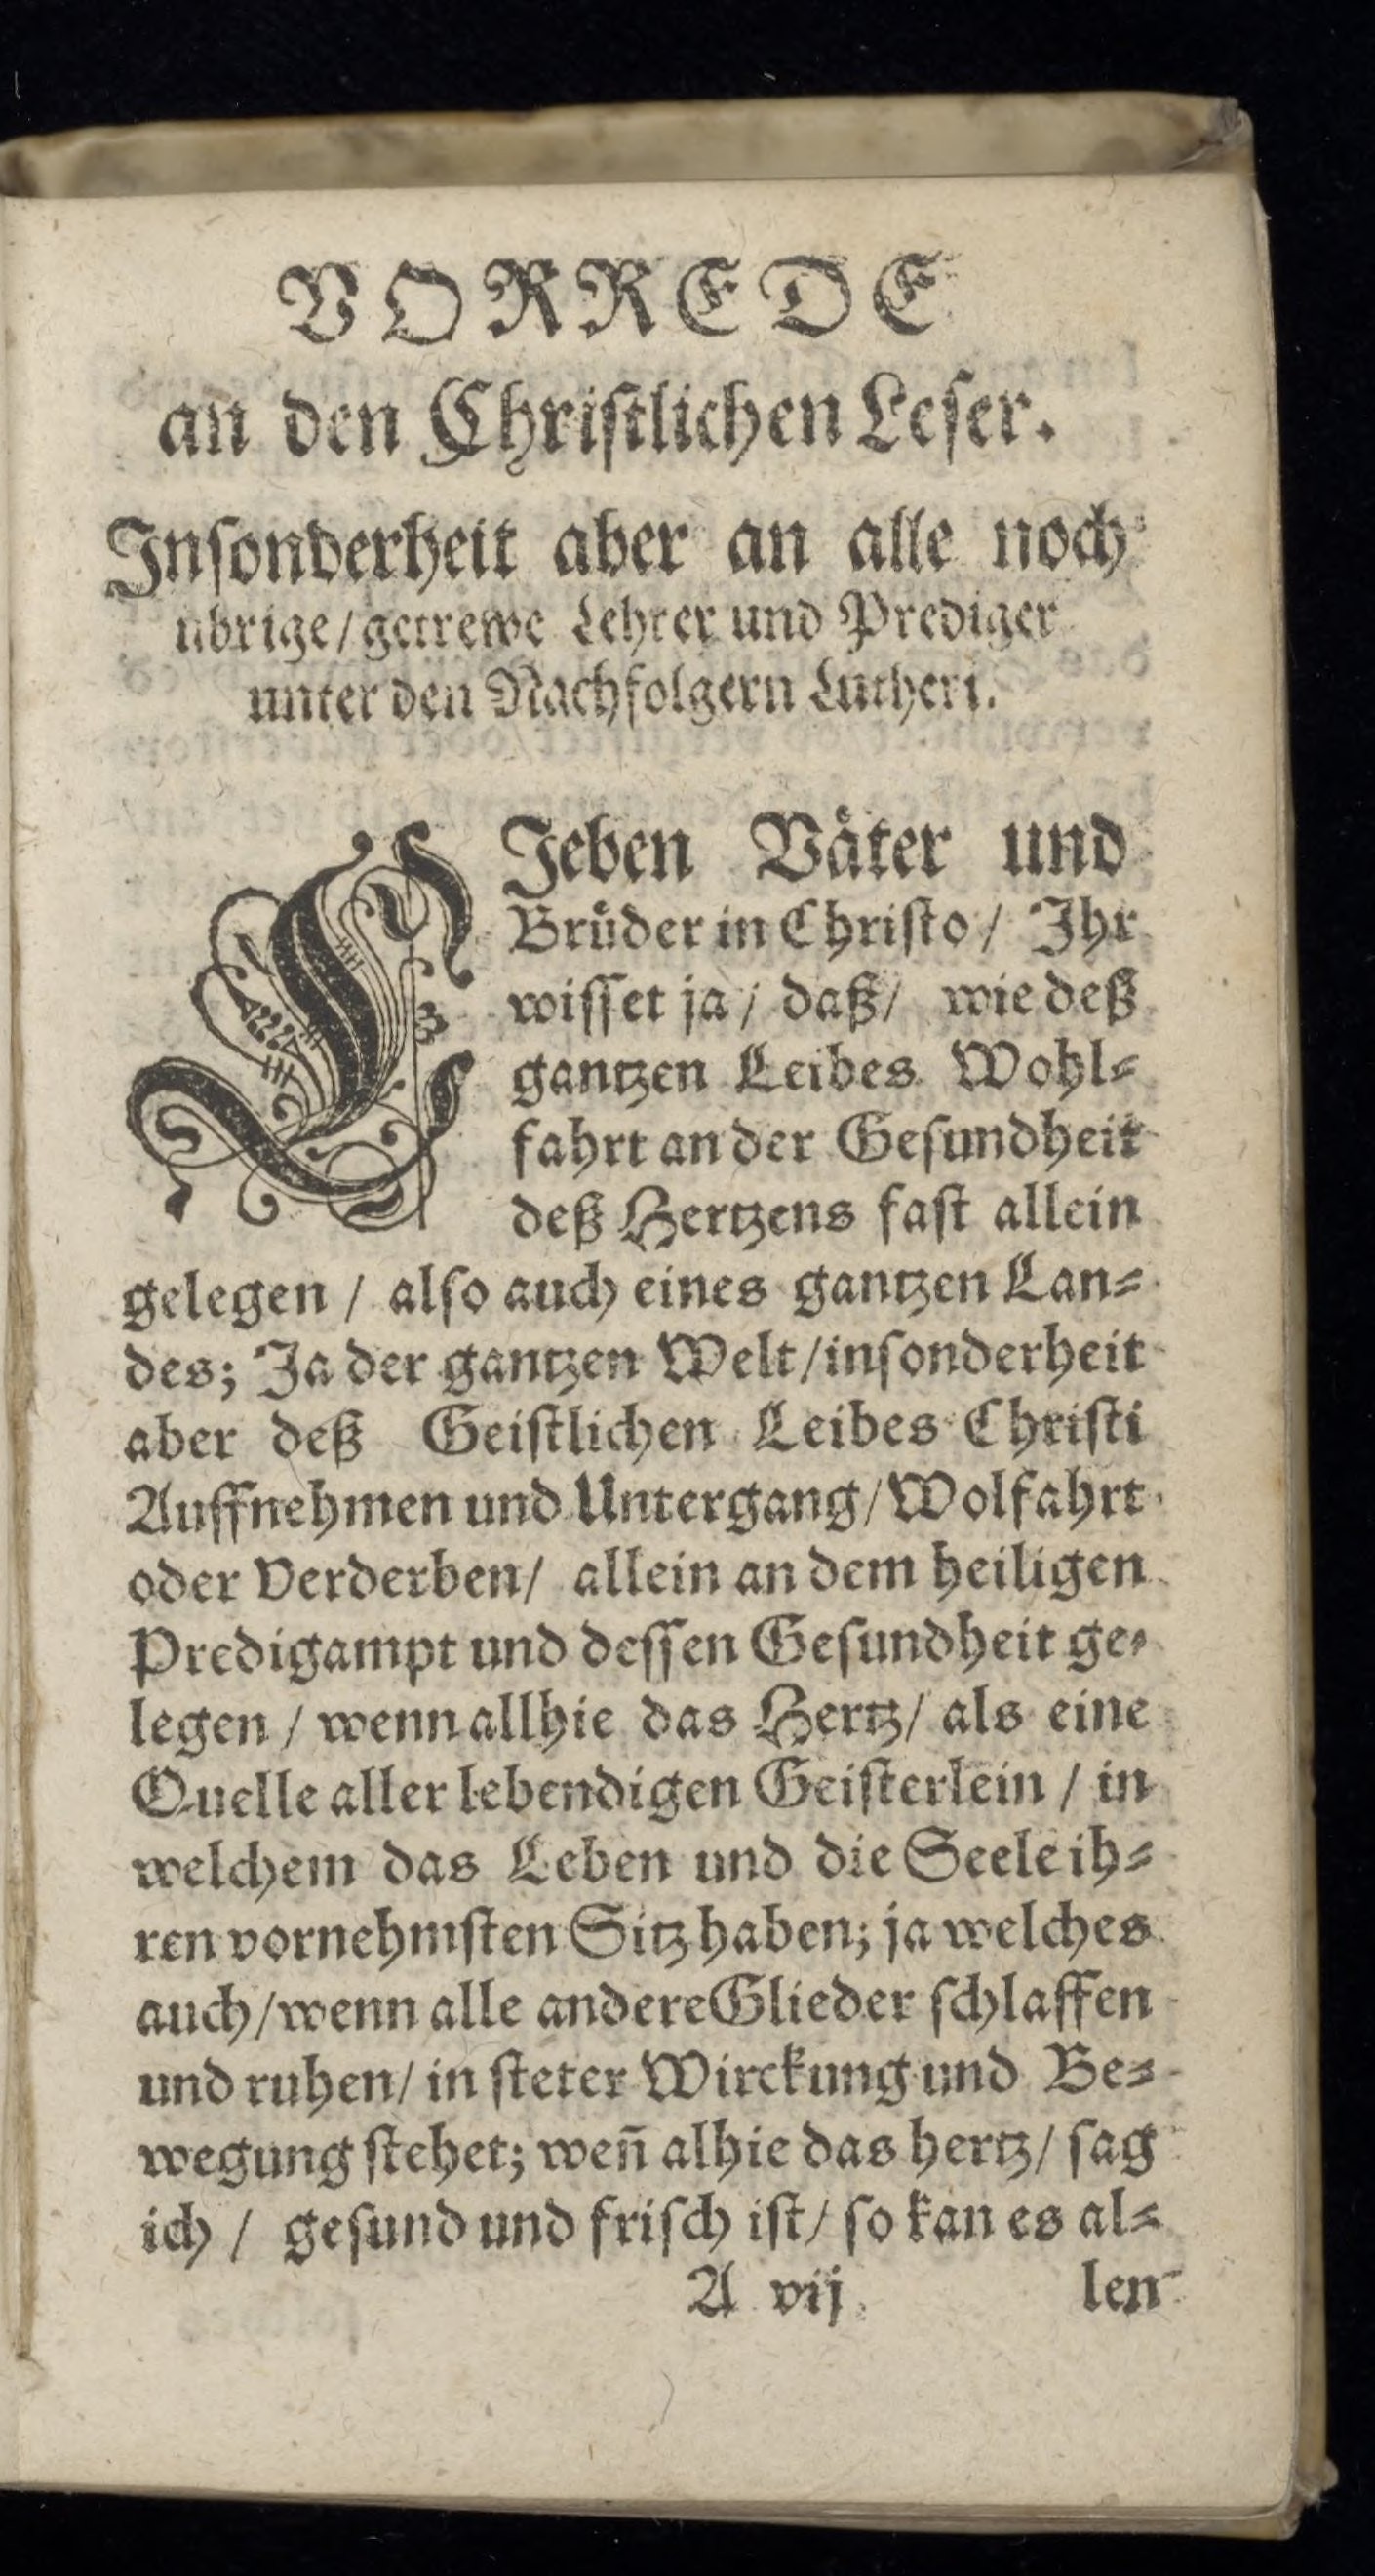 VORREDE
an den Chriſtlichen Leſer.
Inſonderheit aber an alle noch
übrige/getrewe Lehrer und Prediger
unter den Nachfolgern Lutheri.
LJeben Väter und
Brüder in Chriſto/ Ihr
wiſſet ja/ daß/ wie deß
gantzen Leibes Wohl⸗
fahrt an der Geſundheit
deß Hertzens faſt allein
gelegen / alſo auch eines gantzen Lan⸗
des; Ja der gantzen Welt/inſonderheit
aber deß Geiſtlichen Leibes Chriſti
Auffnehmen und Untergang/Wolfahrt
oder Verderben/ allein an dem heiligen
Predigampt und deſſen Geſundheit ge⸗
legen / wenn allhie das Hertz/ als eine
Quelle aller lebendigen Geiſterlein / in
welchem das Leben und die Seele ih⸗
ren vornehmſten Sitz haben; ja welches
auch/wenn alle andere Glieder ſchlaffen
und ruhen/ in ſteter Wirckung und Be⸗
wegung ſtehet; weñ alhie das hertz/ ſag
ich / geſund und friſch iſt/ ſo kan es al⸗
A vij len